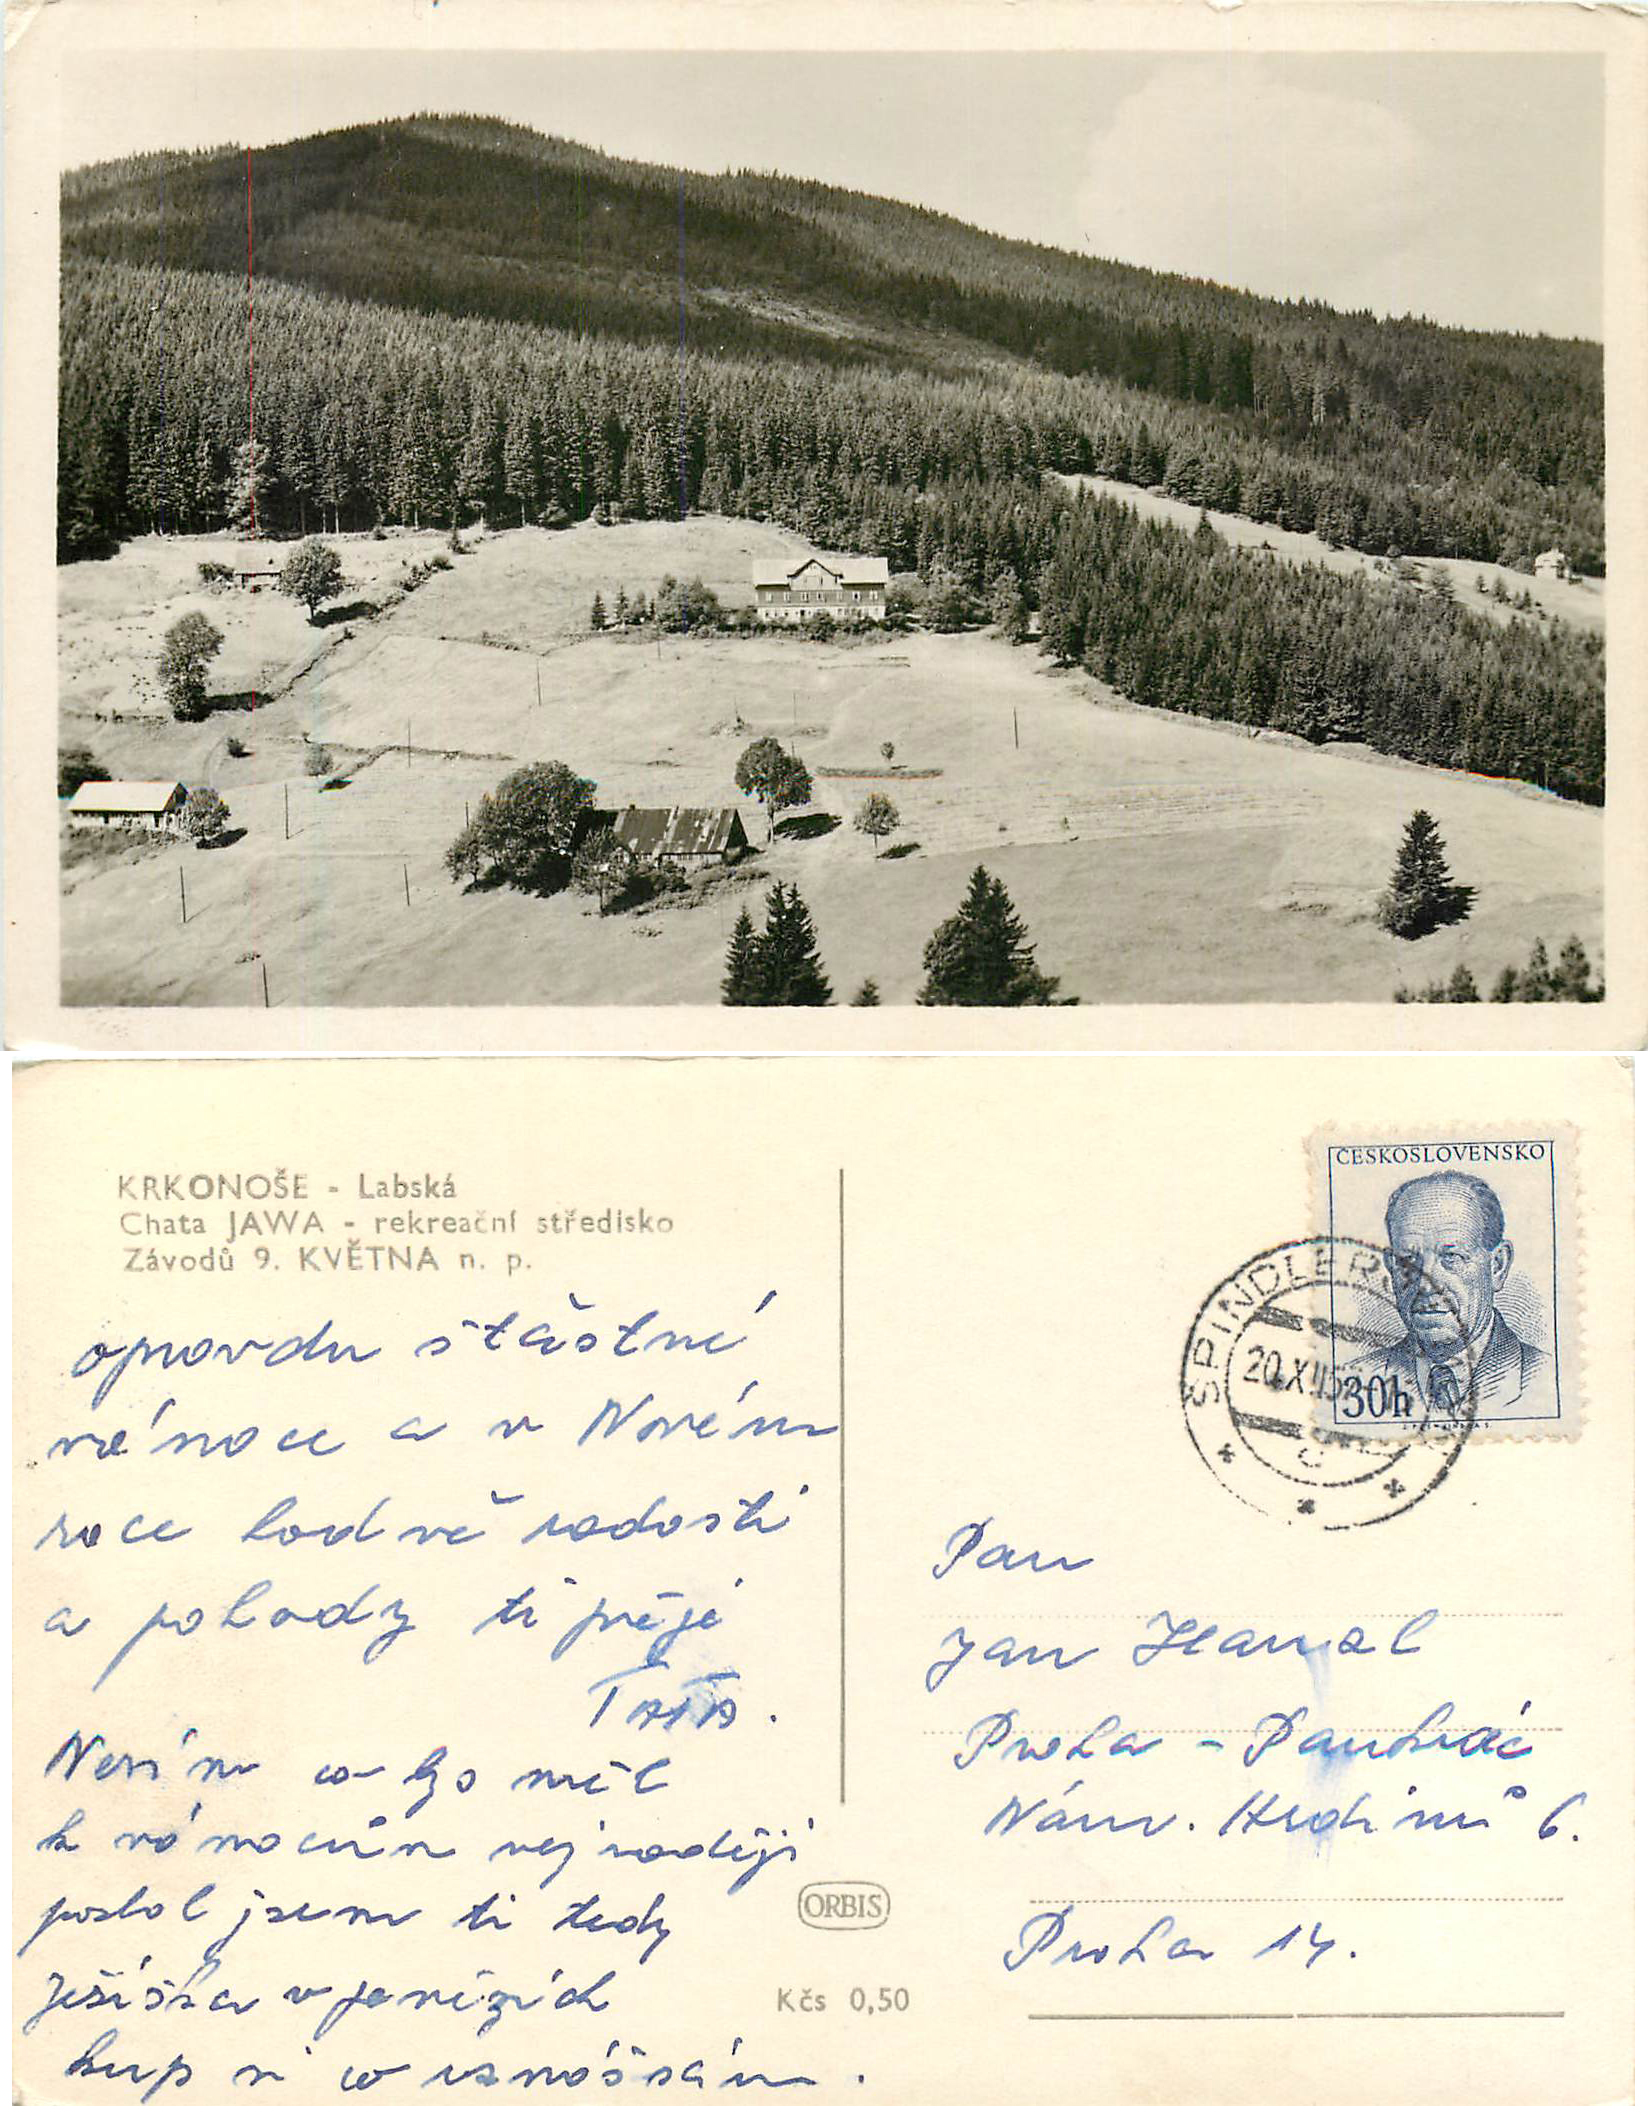 KRKONOŠE - Labská
Chata JAWA - rekreační středisko
Závodů 9. KVĚTNA n. p.
opravdu šťastné
vánoce a v Novém
roce hodně radosti
a pohody ti přeje
TATA.
Nevím co bys měl
k vánocům nejraději
poslal jsem ti tedy
Ježíška v penězích
kup si co uznáš sám.
ORBIS
Kčs 0,50
ČESKOSLOVENSKO
30h
ŠPINDLERŮV
20.XII.5
c
Pan
Jan Hanzl
Praha - Pankrác
Nám. Hrdinů 6.
Praha 14.